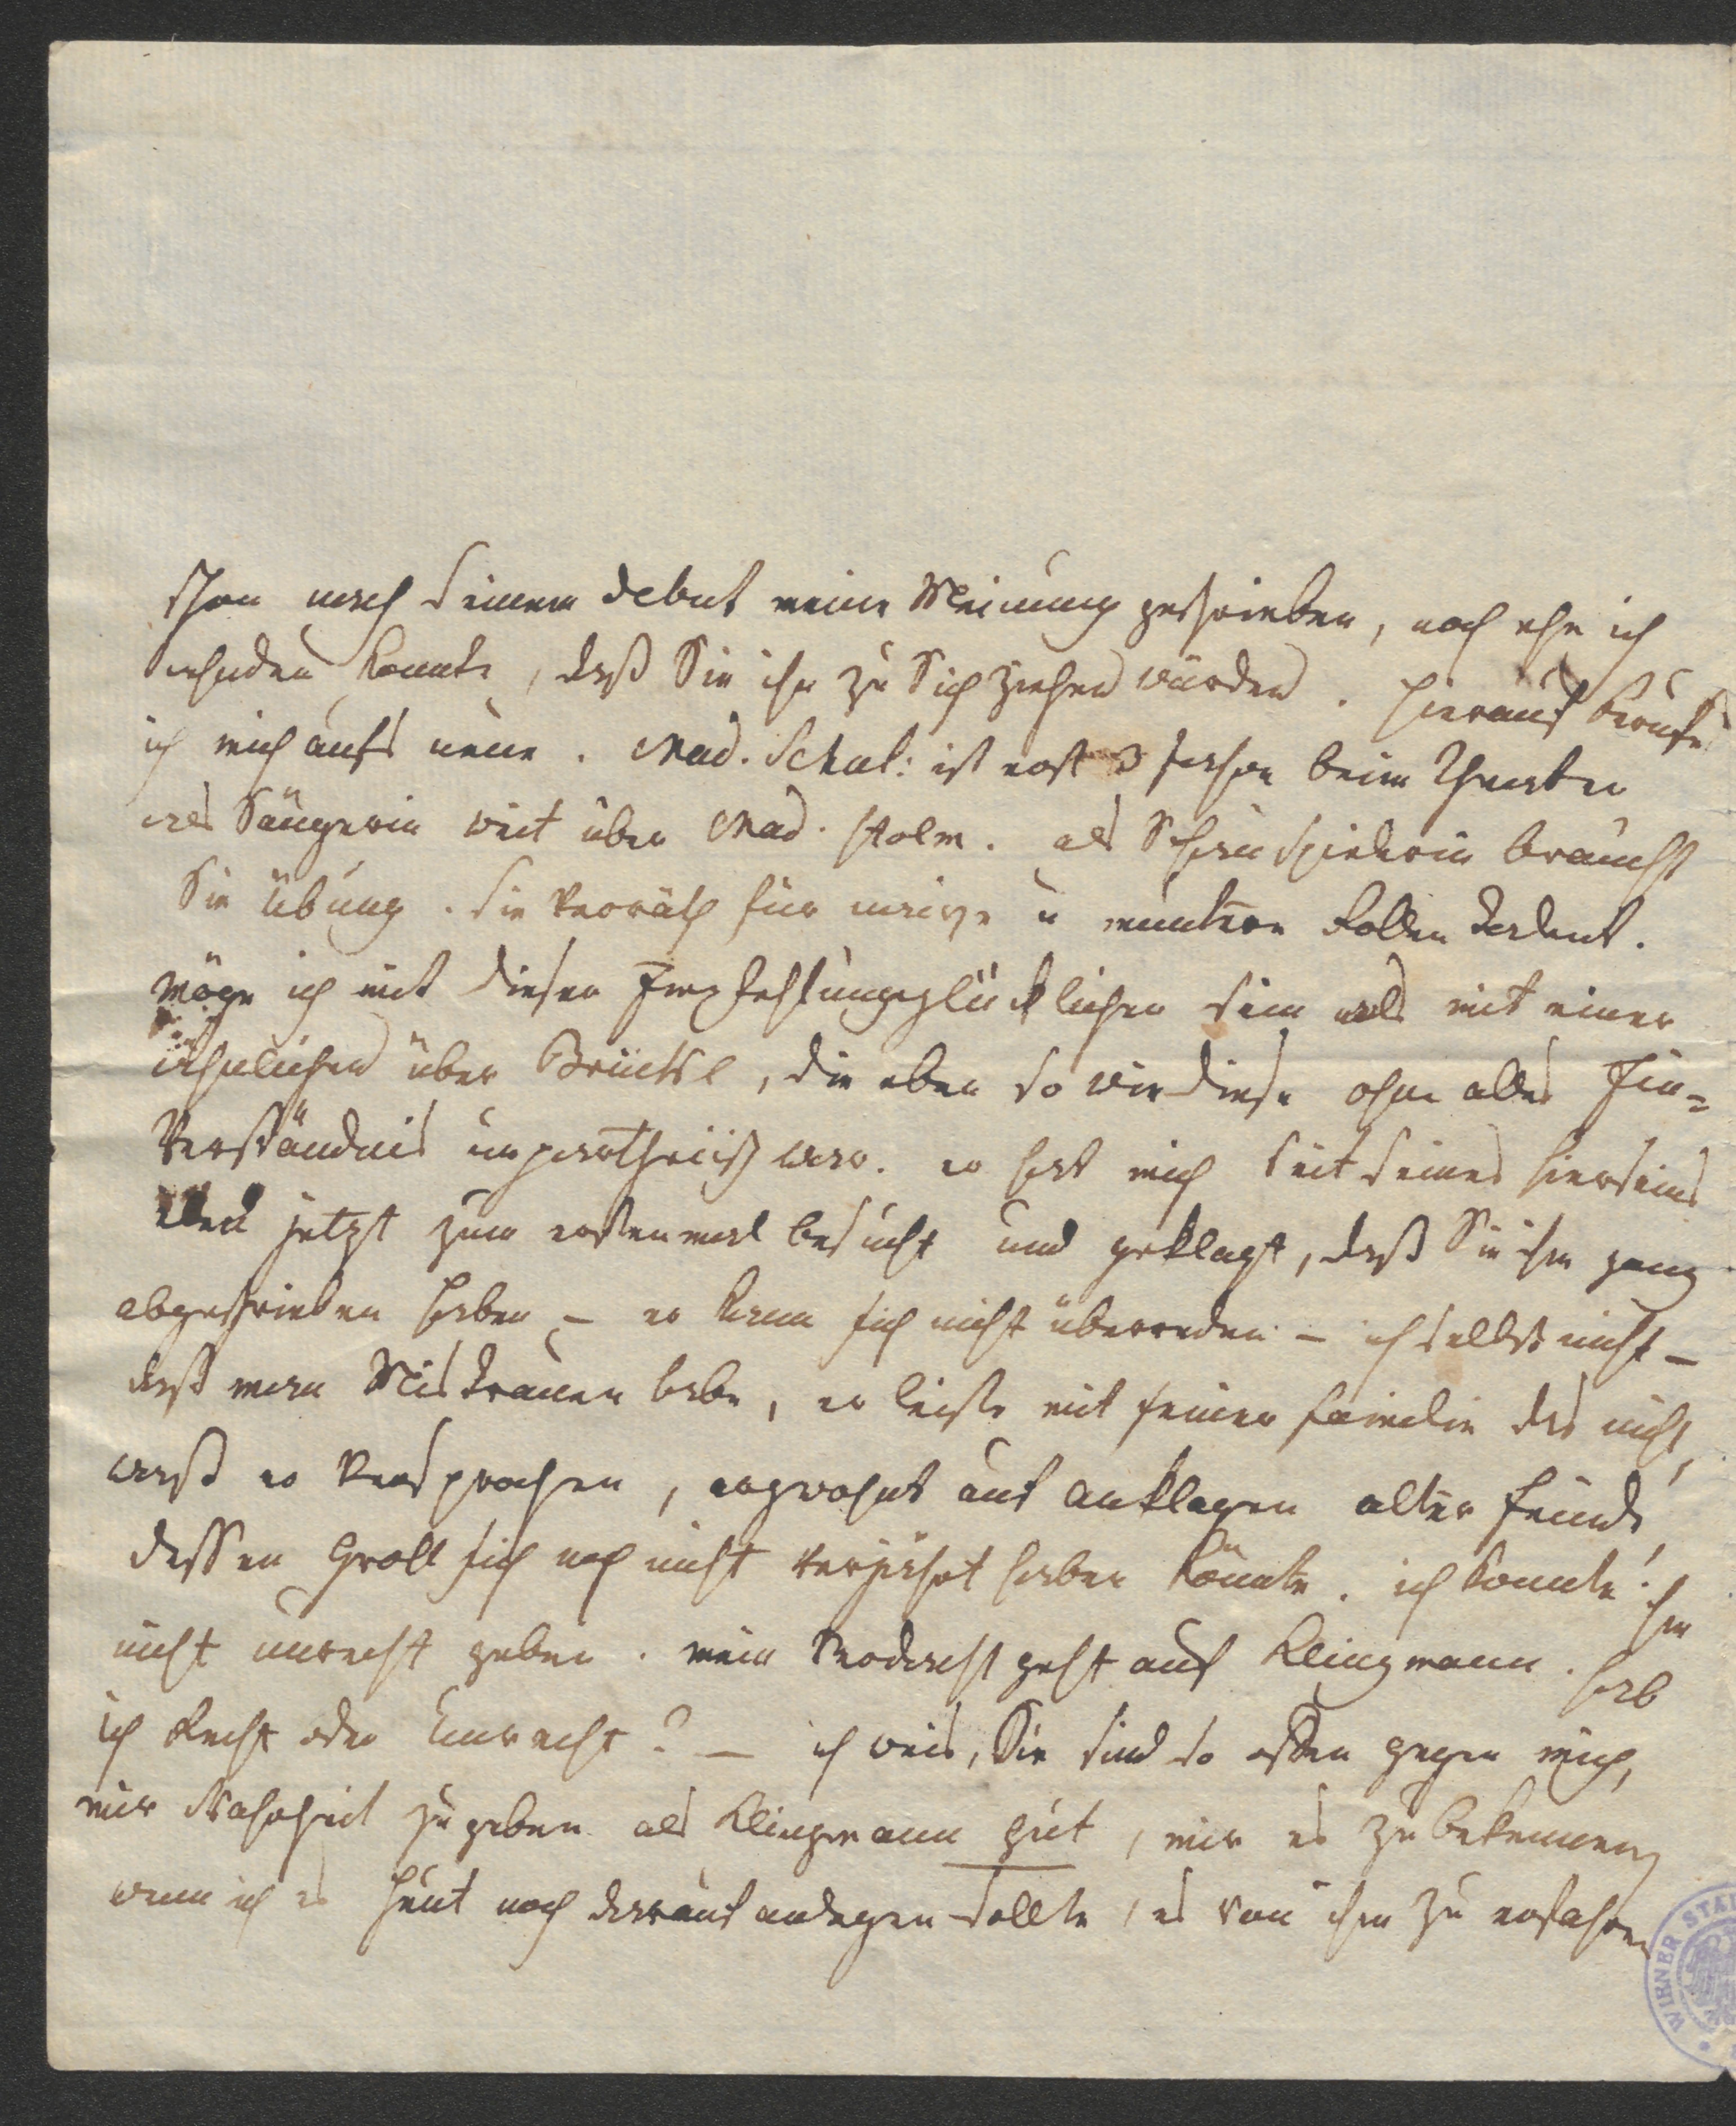 schon nach seinem debut meine Meinung geschrieben, noch ehe ich
ahnden konnte, daß Sie ihn zu Sich ziehen würden. hierauf berufe
ich mich aufs neue. Mad. Schul: ist erst 3 Jahre beim Theater
als Sängerin weit über Mad. Stolm. als Schauspielerin braucht
Sie übung. Sie verräth für naive u muntere Rollen Talent.
möge ich mit dieser Empfehlung glücklicher sein als mit einer
ähnlichen über Brückl, die eben so wie diese ohne alles Ein=
verständnis unpartheiisch war. er hat mich seit seines hierseins
eben jetzt zum erstenmal besucht und geklagt, daß Sie ihm ganz
abgeschrieben haben – er kann sich nicht überreden – ich selbst nicht –
daß man Mistrauen habe, er leiste mit seiner familie das nicht,
waß er versprochen, argwohnt auf anklagen alter feinde
dessen Groll sich noch nicht verjährt haben könnte. ich konnte ihm
nicht unrecht geben. mein Verdacht geht auf Klingmann. hab
ich Recht oder Unrecht? – ich weis, Sie sind so offen gegen mich,
mir Wahrheit zu geben als Klingmann gut, mir es zu bekennen,
wenn ich es heut noch darauf anlegen sollte, es von ihm zu erfahren
WIENER STA